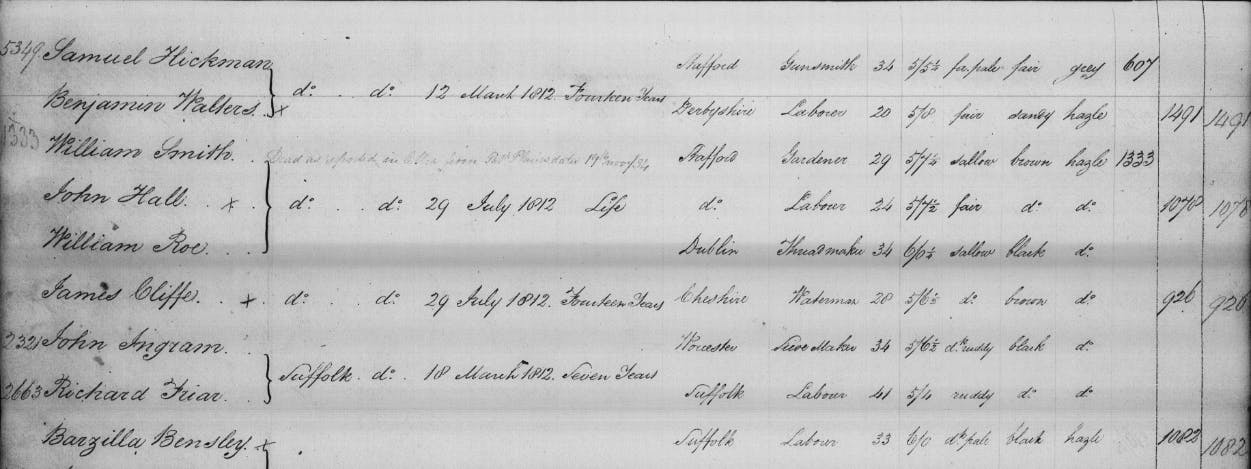 5349 Samuel Hickman Stafford Gunsmith 34 5/5½ fr. pale fair grey 607
do . . do 12 March 1812 Fourteen Years
Benjamin Walters x Derbyshire Labourer 20 5/8 fair sandy hazle 1491 1491
1333 William Smith . Dead as reported in from dated 19th Novr/34 Stafford Gardener 29 sallow brown hazle 1333
John Hall . x do . . do 29 July 1812 Life do Labourer 24 5/7½ fair do do 1078 1078
William Roe . . Dublin Threadmaker 34 sallow black do
James Cliffe . x do . . do 29 July 1812 Fourteen Years Cheshire Waterman 28 do brown do 926 926
2321 John Ingram . . Worcester Maker 34 5/6½ dk ruddy black do
Suffolk . do . 18 March 1812 Seven Years
2663 Richard Friar . . Suffolk Labourer 41 5/4 ruddy do do
Barzilla Bensley x Suffolk Labourer 33 6/0 dk pale black hazle 1082 1082